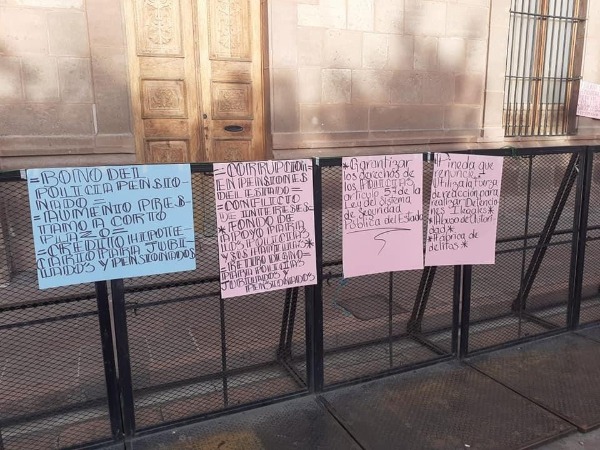 =BONO DEL
POLICIA PENSIO
NADO=
=AUMENTO PRES
TAMO A CORTO
PLAZO=
=CREDITO HIPOTE
CARIO PARA JUBI
LADOS Y PENSIONADOS
=CORRUPCION
EN PENSIONES
DEL ESTADO=
=CONFLICTO
DE INTERESES
=FONDO DE
APOYO PARA
LOS POLICIAS
Y SUS FAMILIAS*
=RETIRO DIGNO
PARA POLICIAS
JUBILADOS
Y PENSIONADOS
*Garantizar
los derechos de
los POLICIAS
artículo 57 de la
Ley del Sistema
de Seguridad
Pública del Estado
*Pineda que
renuncie*
*Utiliza la fuerza
de reacción para
realizar Detencio
nes Ilegales*
*Abuso de Autori
dad*
*Fabrica de
delitos*